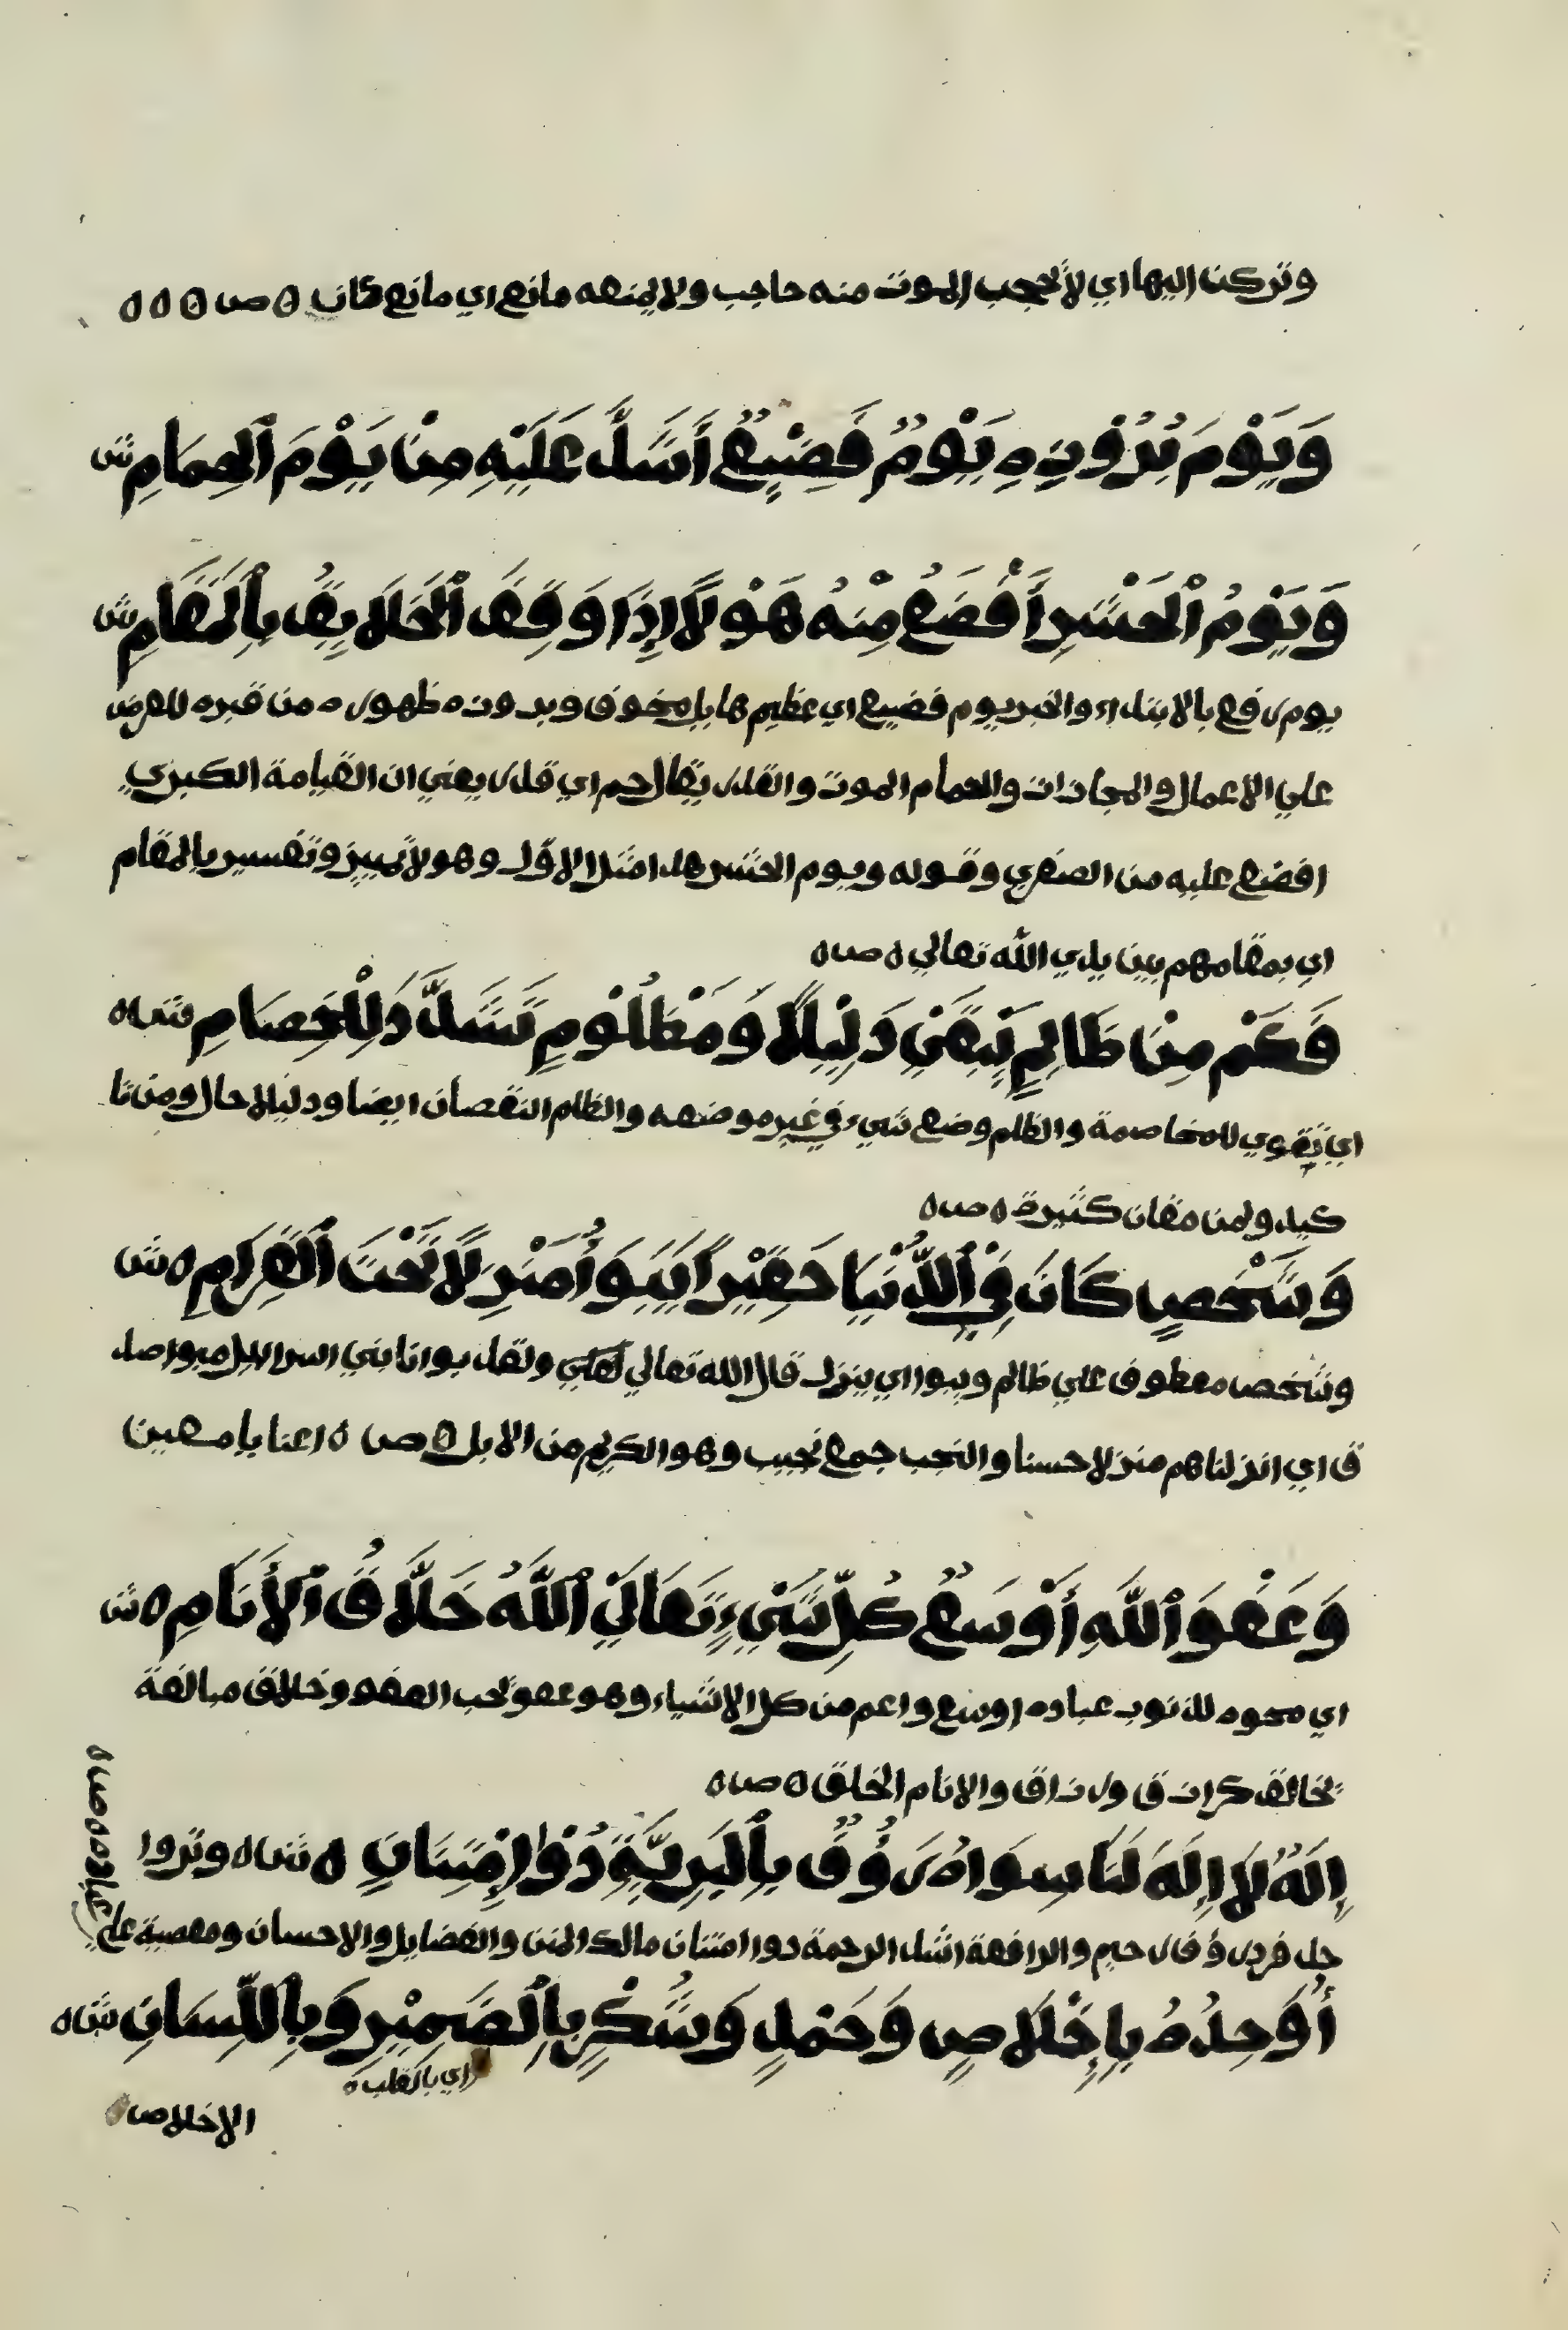 وتركن اليها اي لا يحجب الموت منه حاجب ولا يمنعه مانع اي مانع كان ه ص ه ه ه
وَيَوْمَ بُرُوْزِهِ يَوْمٌ فَضِيْعٌ أَشَدُّ عَلَيْهِ مِنْ يَوْمَ ٱلْحِمَامِ ش
وَيَوْمُ ٱلْحَشْرِ أَفْضَعُ مِنْهُ هَوْلًا إِذَا وَقِفَ ٱلْخَلَايِقُ بِٱلْمَقَامِ ش
يوم رفع بالابتداء والخبر يوم فضيع اي عظيم هايل مخوف وبروزه ظهوره من قبره للعرض
علي الاعمال والمجازات والحمام الموت والقدر يقال حم اي قدر يعني ان القيامة الكبري
افضع عليه من الصغري وقوله ويوم الحشر هذا مثل الاول وهولا تمييز وتفسير بالمقام
اي بمقامهم بين يدي الله تعالي ه ص ه
فَكَمْ مِنْ ظَالِمٍ يَبِقَيٰ دَلِيْلًا وَمَظْلُوْمٍ تَشَدَّدَ لِلْخِصَامِ ش ه
اي يقوي للمخاصمة والظلم وضع شيء في غير موضعه والظلم النقصان ايضا ودليلا حال ومن تا
كيد ولمن مقان كثيرة ه ص ه
وَشَخْصٍ كَانَ فِي ٱلدُّنْيَا حَقِيْرًا يَبَوَأُ مَنْزِلًا تَحْتَ ٱلْقِرَامِ ه ش
وشخص معطوف علي ظالم ويبوا اي ينزل قال الله تعالي ولقد بوانا بني اسرائيل مبوا صد
ق اي انزلناهم منزلا حسنا والنجب جمع نجيب وهو الكريم من الابل ه ص ه اعنا يا معين
وَعَفْوَ ٱللَّهِ أَوْسَعُ كُلِّ شَيْءٍ تَعَالَيٰ ٱللَّهُ خَلَّاقُ ٱلْأَنَامِ ه ش
اي محوه للذنوب عباده اوسع واعم من كل الاشياء وهو عفو يحب العفو وخلاق مبالغة
لخالق كرازق ورزاق والانام الخلق ه ص ه
إِلَهٌ لَا إِلَهَ لَنَا سِوَاهُ رَؤُوْفٌ بِٱلْبَرِيَّةِ دُوْا إِمْتِنَانٍ ه ش ه وتروا
جل فرد رؤف رحيم والرافعة اشد الرحمة دوا امتنان مالك المنن والفضايل والاحسان ومعصية علي
عباده ه ص ه
أُوَحِدُهُ بِإِخْلَاصٍ وَحَمْدٍ وَشُكْرٍ بِٱلضَمِيْرِ وَبِٱللِّسَانِ ش ه
اي بالقلب ه
الاخلاص ه